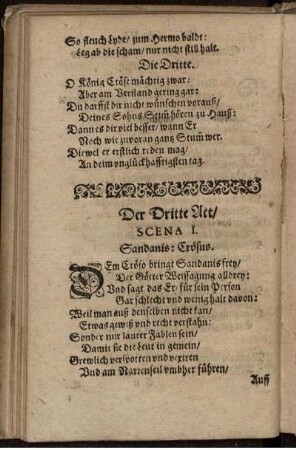 So fleuch Lyde/ zum Hermo balde:
Leg ab die scham/ nur nicht still halt.
Die Dritte.
O König Cröse mächtig zwar:
Aber am Verstand gering gar:
Du darffst dir nicht wünschen vorauß/
Deines Sohns Stim̃ hören zu Hauß:
Dann es dir viel besser/ wann Er
Noch wie zuvoran gantz Stum̃ wer.
Die wel er erstlich reden mag/
An deim vnglückhafftigsten tag.
Der Dritte Act/
SCENA I.
Sandanis: Crösus.
DEm Cröso bringt Sandanis frey/
Der Götter Weissagung alldrey:
Vnd sagt das Er/ für sein Person
Gar schlecht vnd wenig halt davon:
Weil man auß denselben nicht kan/
Etwas gewiß vnd recht verstahn:
Sonder nur lauter Fablen sein/
Damit sie die Leut in gemein/
Grewlich verspotten vnd vexiren
Vnd am Narrenseil vmbher führen/
Auff